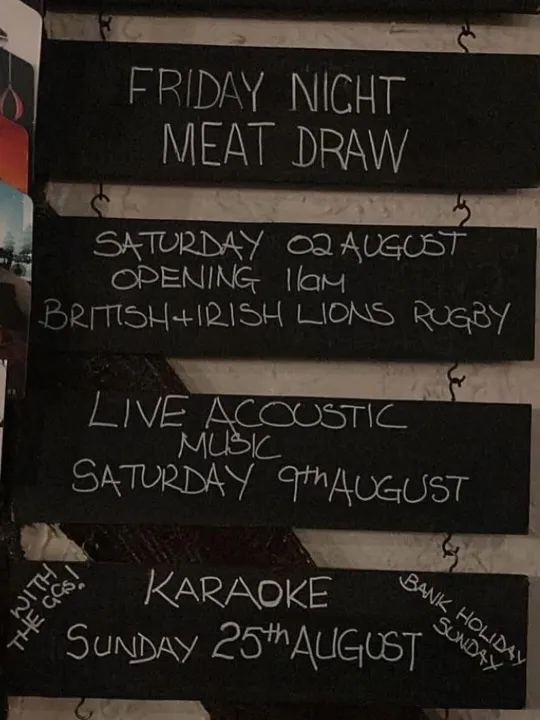 FRIDAY NIGHT
MEAT DRAW
SATURDAY 02 AUGUST
OPENING 11am
BRITISH+IRISH LIONS RUGBY
LIVE ACOUSTIC
MUSIC
SATURDAY 9th AUGUST
WITH
THE GGS!
KARAOKE
SUNDAY 25th AUGUST
BANK HOLIDAY
SUNDAY